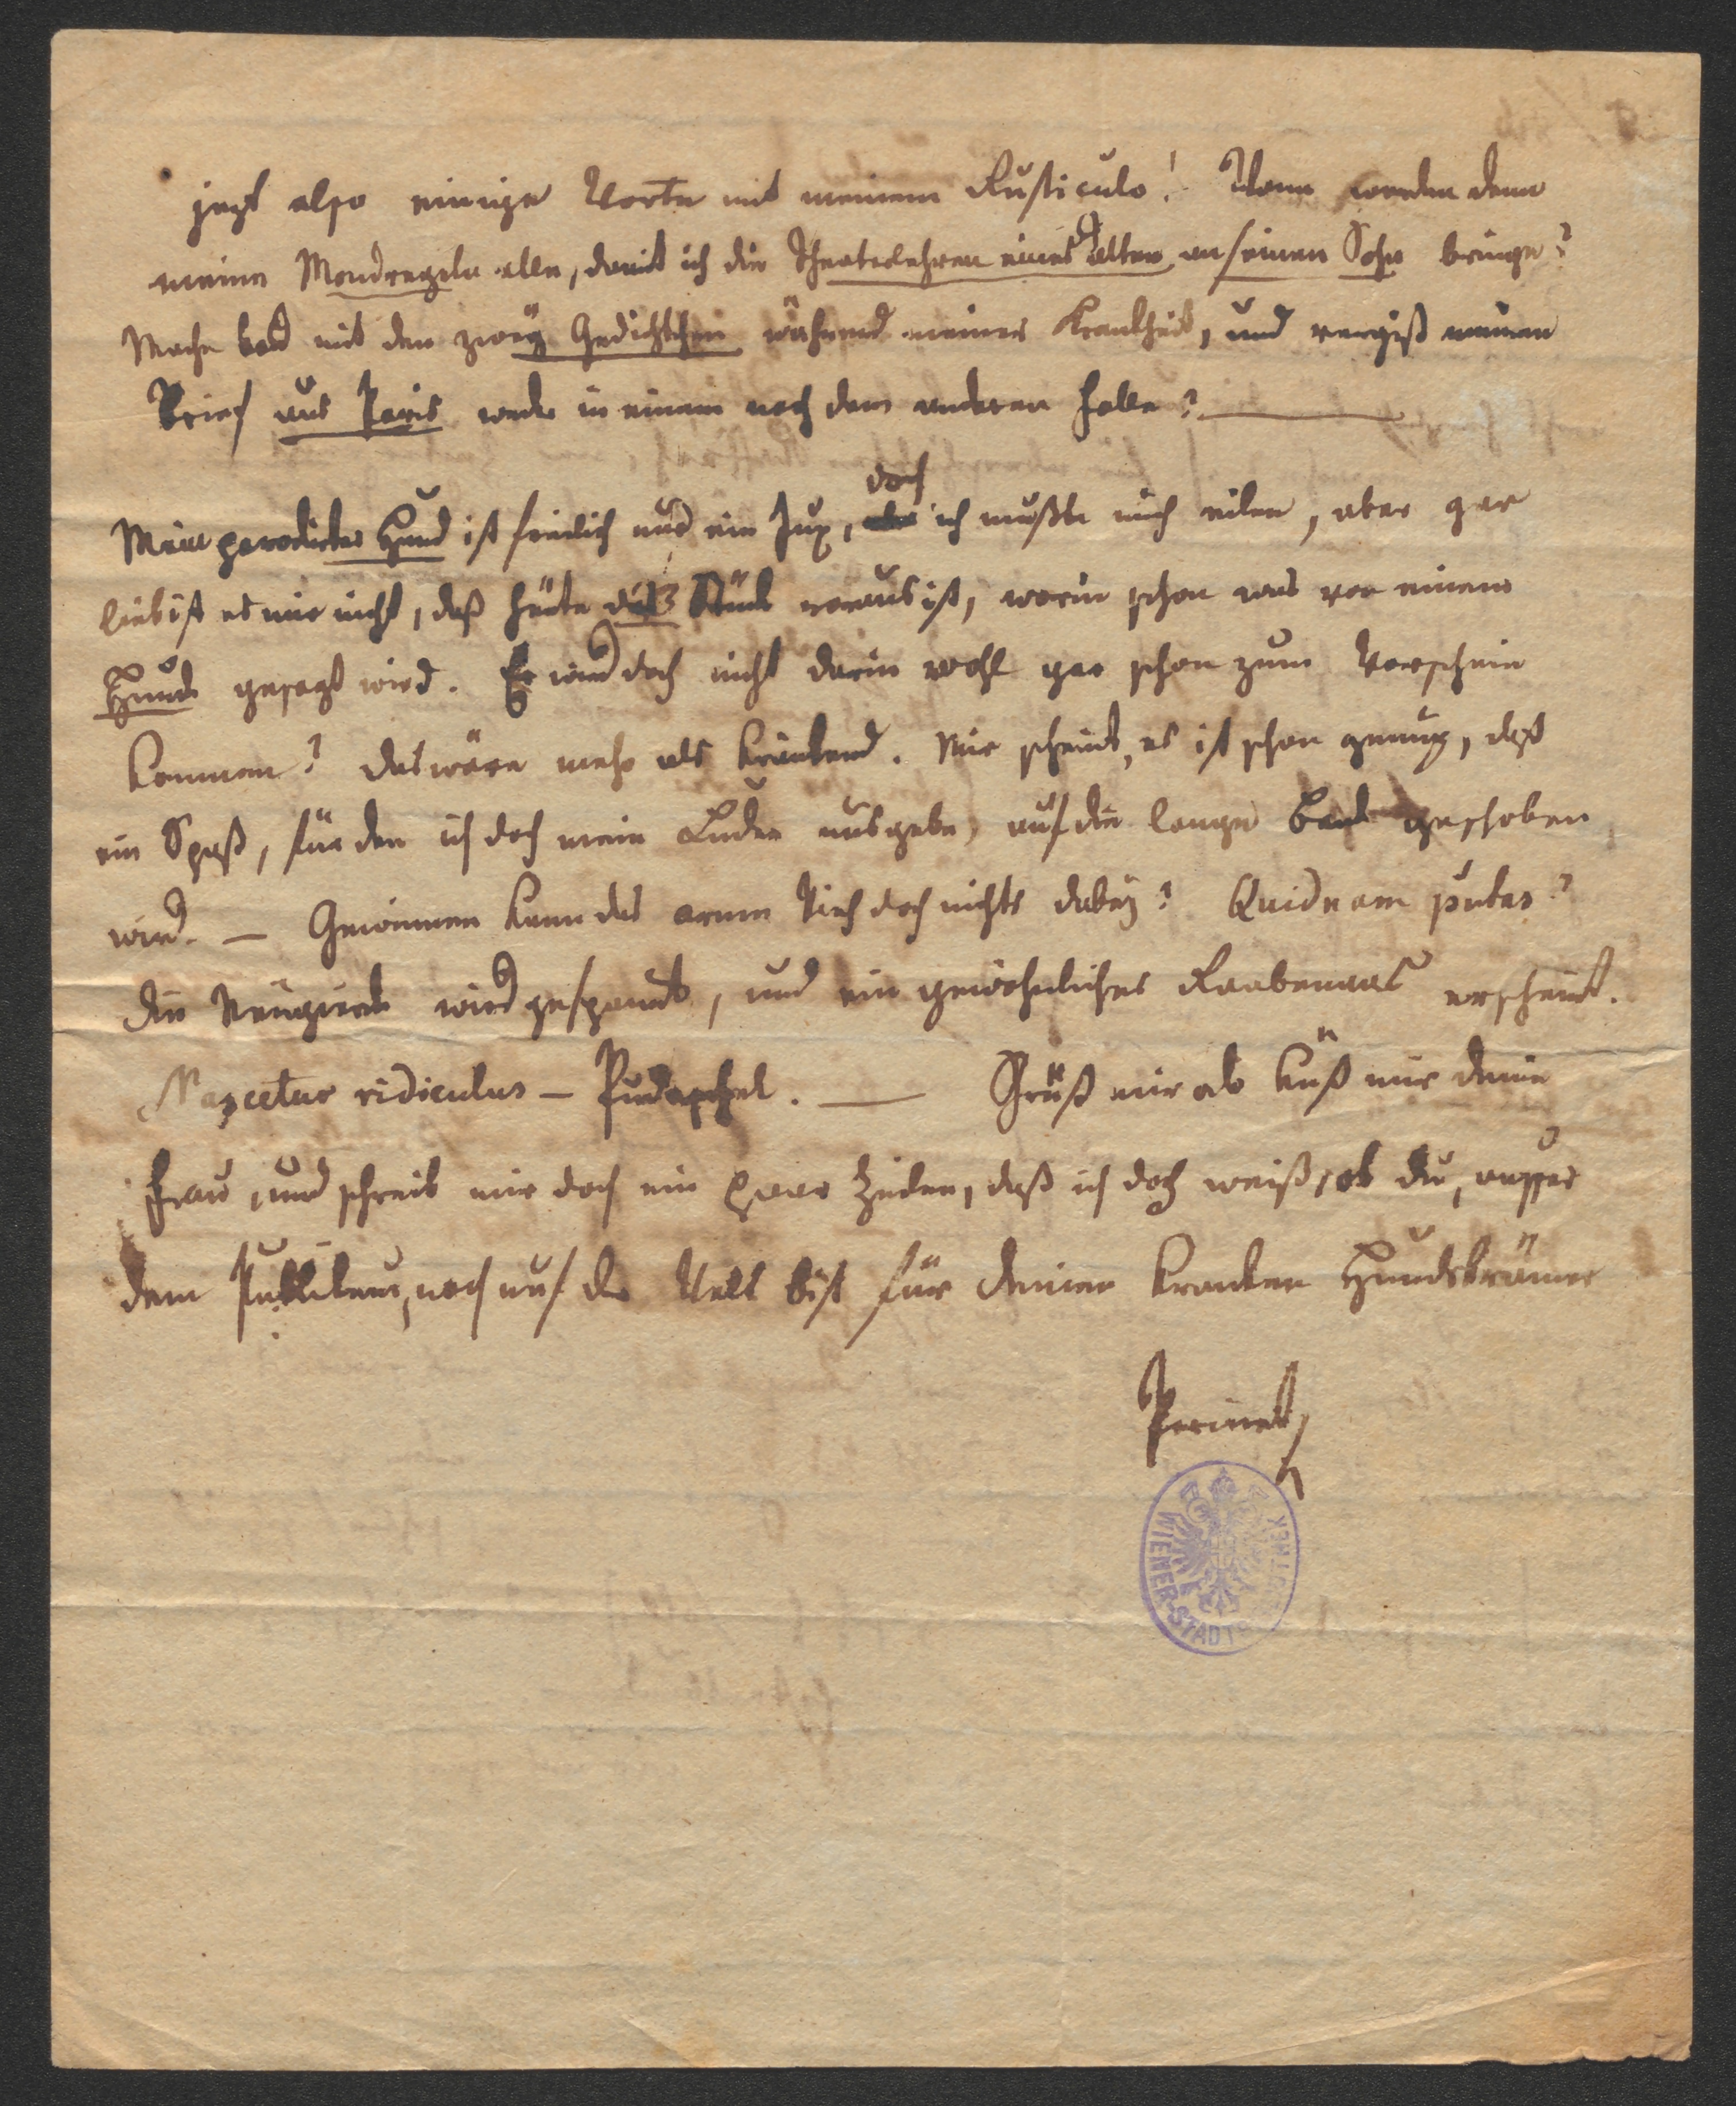 jezt also einige Worte mit meinem Rusticulo! Wann werden denn
meine Mondregeln alle, damit ich die Theaterlehren eines Alten an seinen Sohn bringe?
Mache bald mit den zwey Gedichtchen während meiner Krankheit, und vergiß meinen
Brief aus Paris weder in einem noch dem anderen Falle?
doch
Mein parodirter Hund ist freilich nur ein Jux, ich mußte mich eilen, aber gar
lieb ist es mir nicht, daß heute das Stück voraus ist, worin schon was von einem
Hunde gesagt wird. Er wird doch nicht darin wohl gar schon zum Vorschein
kommen? Das wäre mehr als kränkend. Mir scheint, es ist schon genug, daß
ein Spaß, für den ich doch mein Luder ausgebe, auf die lange Bank geschoben
wird. — Gewinnen kann das arme Vieh doch nichts dabey? Quidnam putas?
Die Neugierde wird gespannt, und ein gewöhnliches Raabenaas erscheint.
Nascetur ridiculus — Pudapchel. — Grüß mir ab küß mir deine
Frau, und schreib mir doch ein Paar Zeilen, daß ich doch weiß, ob du, ausser
dem Publikum, noch auf der Welt bist für deinen kranken Hundskrämer
Perinet
WIENER-STADTBIBLIOTHEK